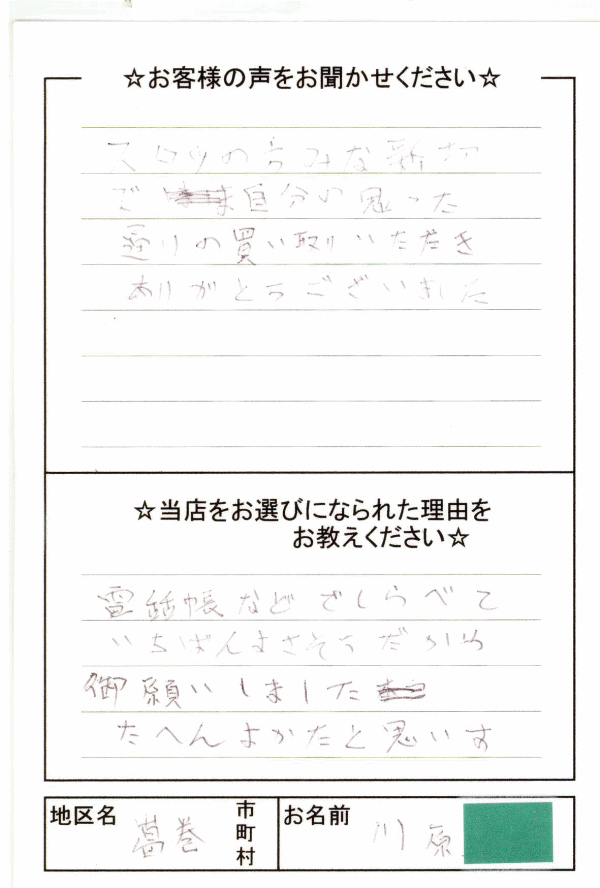 ☆お客様の声をお聞かせください☆
スタッフの方みな親切
で 自分の思った
通りの買い取りいただき
ありがとうございました
☆当店をお選びになられた理由を
お教えください☆
電話帳などでしらべて
いちばんよさそうだから
御願いしました
たへんよかたと思います
地区名 葛巻 市町村 お名前 川原